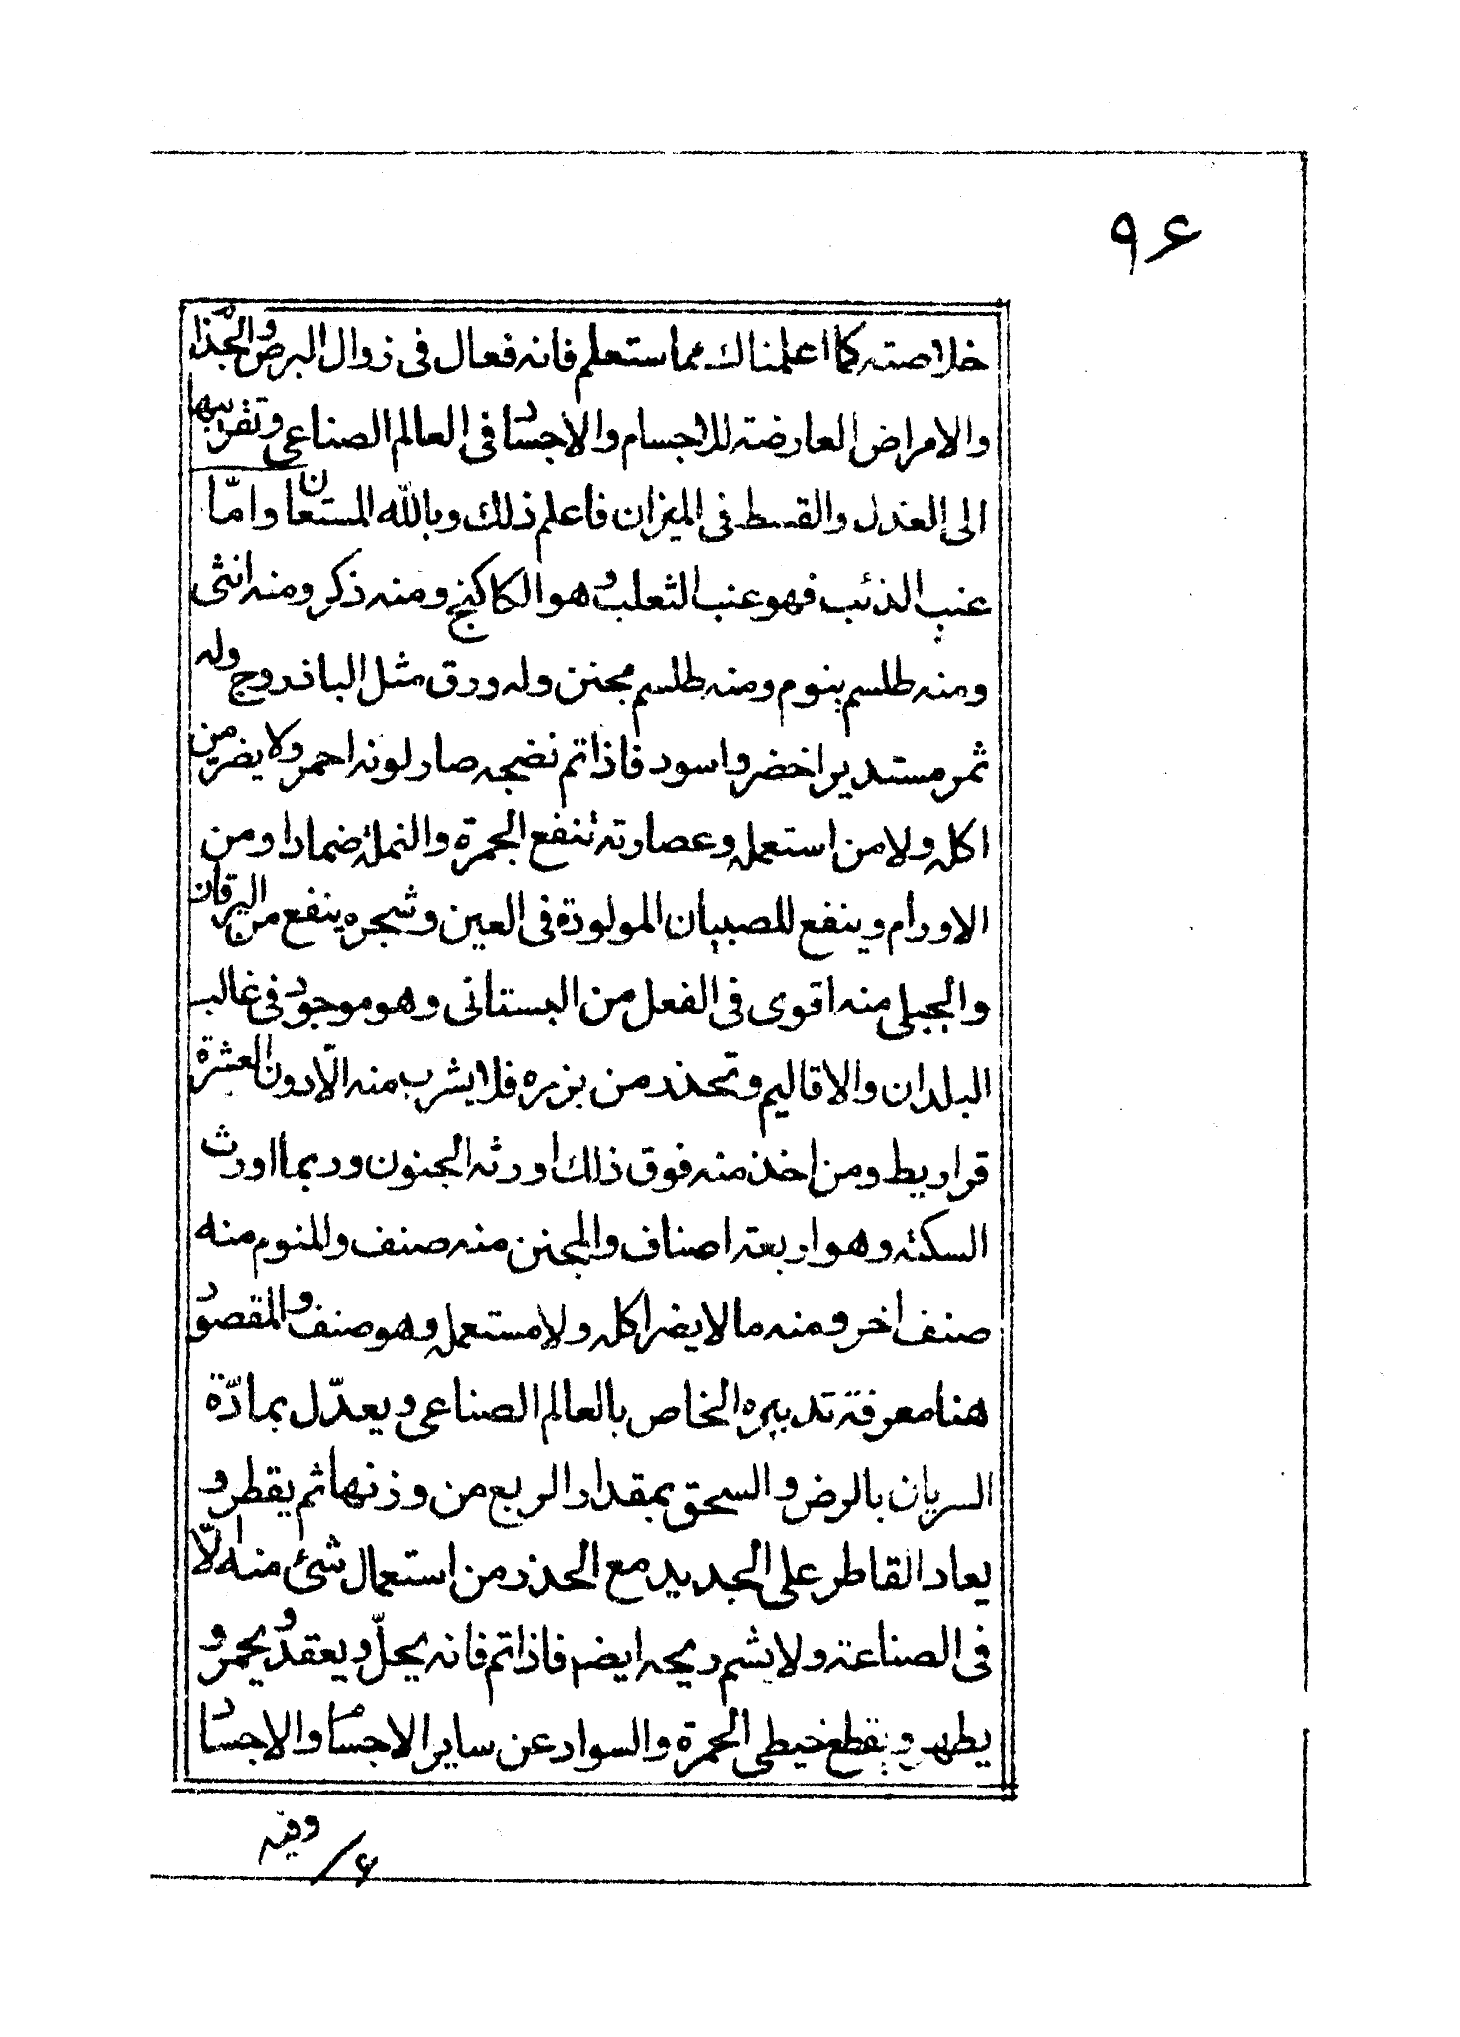 ۹۶
خلاصته كما اعلمناك مما ستعلم فانه فعال فى زوال البرص والجذام
والامراض العارضة للاجسام والاجساد فى العالم الصناعى وتقريبها
الى العدل والقسط فى الميزان فاعلم ذلك وبالله المستعان وامّا
عنب الذئب فهو عنب الثعلب وهو الكاكنج ومنه ذكر ومنه انثى
ومنه طلسم ينوم ومنه طلسم مجنن وله ورق مثل الباذروج وله
ثمر مستدير اخضر واسود فاذا تم نضجه صار لونه احمر ولا يضر من
اكله ولا من استعمله وعصارته تنفع الجمرة والنملة ضمادا ومن
الاورام وينفع للصبيان المولودة فى العين وشجره ينفع من اليرقان
والجبلى منه اقوى فى الفعل من البستانى وهو موجود فى غالب
البلدان والاقاليم وتحذر من بزره فلا يشرب منه الّا دون العشرة
قراريط ومن اخذ منه فوق ذلك اورثه الجنون وربما اورث
السكتة وهو اربعة اصناف والمجنن منه صنف والمنوم منه
صنف اخر ومنه ما لا يضر اكله ولا مستعمله وهو صنف والمقصود
هنا معرفة تدبيره الخاص بالعالم الصناعى ويعدّل بمادّة
السريان بالرض والسحق بمقدار الربع من وزنها ثم يقطر و
يعاد القاطر على الجديد مع الحذر من استعمال شئ منه الّا
فى الصناعة ولا يشم ريحه ايضا فاذا تم فانه يحلّ ويعقد ويحمر و
يطهر ويقطع خيطى الحمرة والسواد عن ساير الاجسام والاجساد
وفيه
۶/